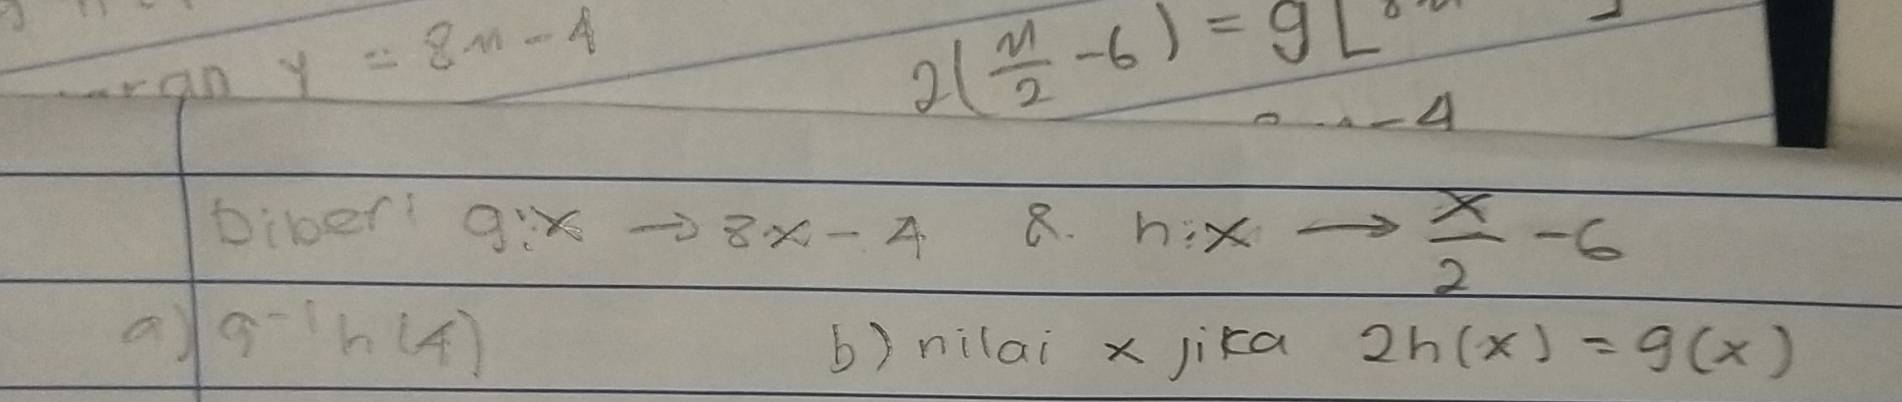 y = 8x - 4
2(x/2 - 6) = g[
- 4
Diberi g:x → 8x - 4 & h:x → x/2 - 6
a) g⁻¹h(4) b) nilai x jika 2h(x) = g(x)